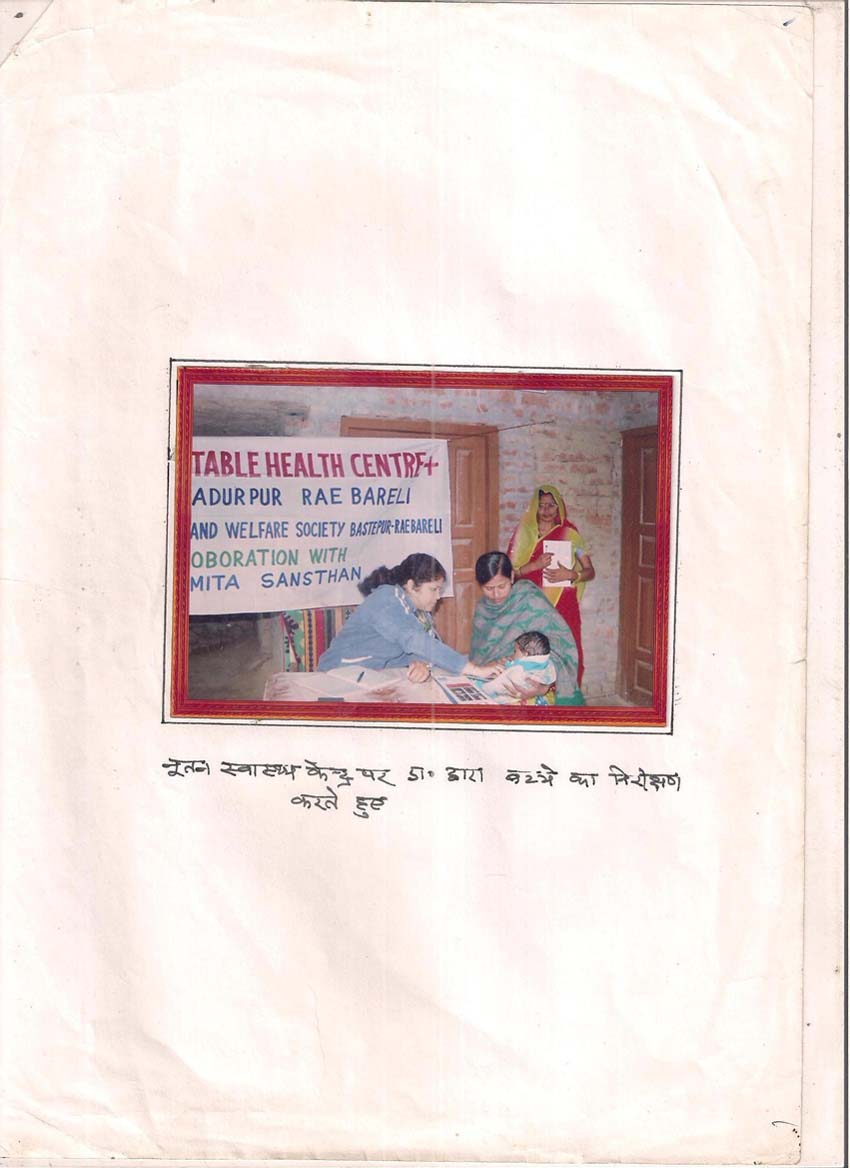 TABLE HEALTH CENTRE+
ADURPUR RAE BARELI
AND WELFARE SOCIETY BASTEPUR-RAEBARELI
OBORATION WITH
MITA SANSTHAN
नूतन स्वास्थ्य केन्द्र पर डा॰ द्वारा बच्चे का निरीक्षण
करते हुए